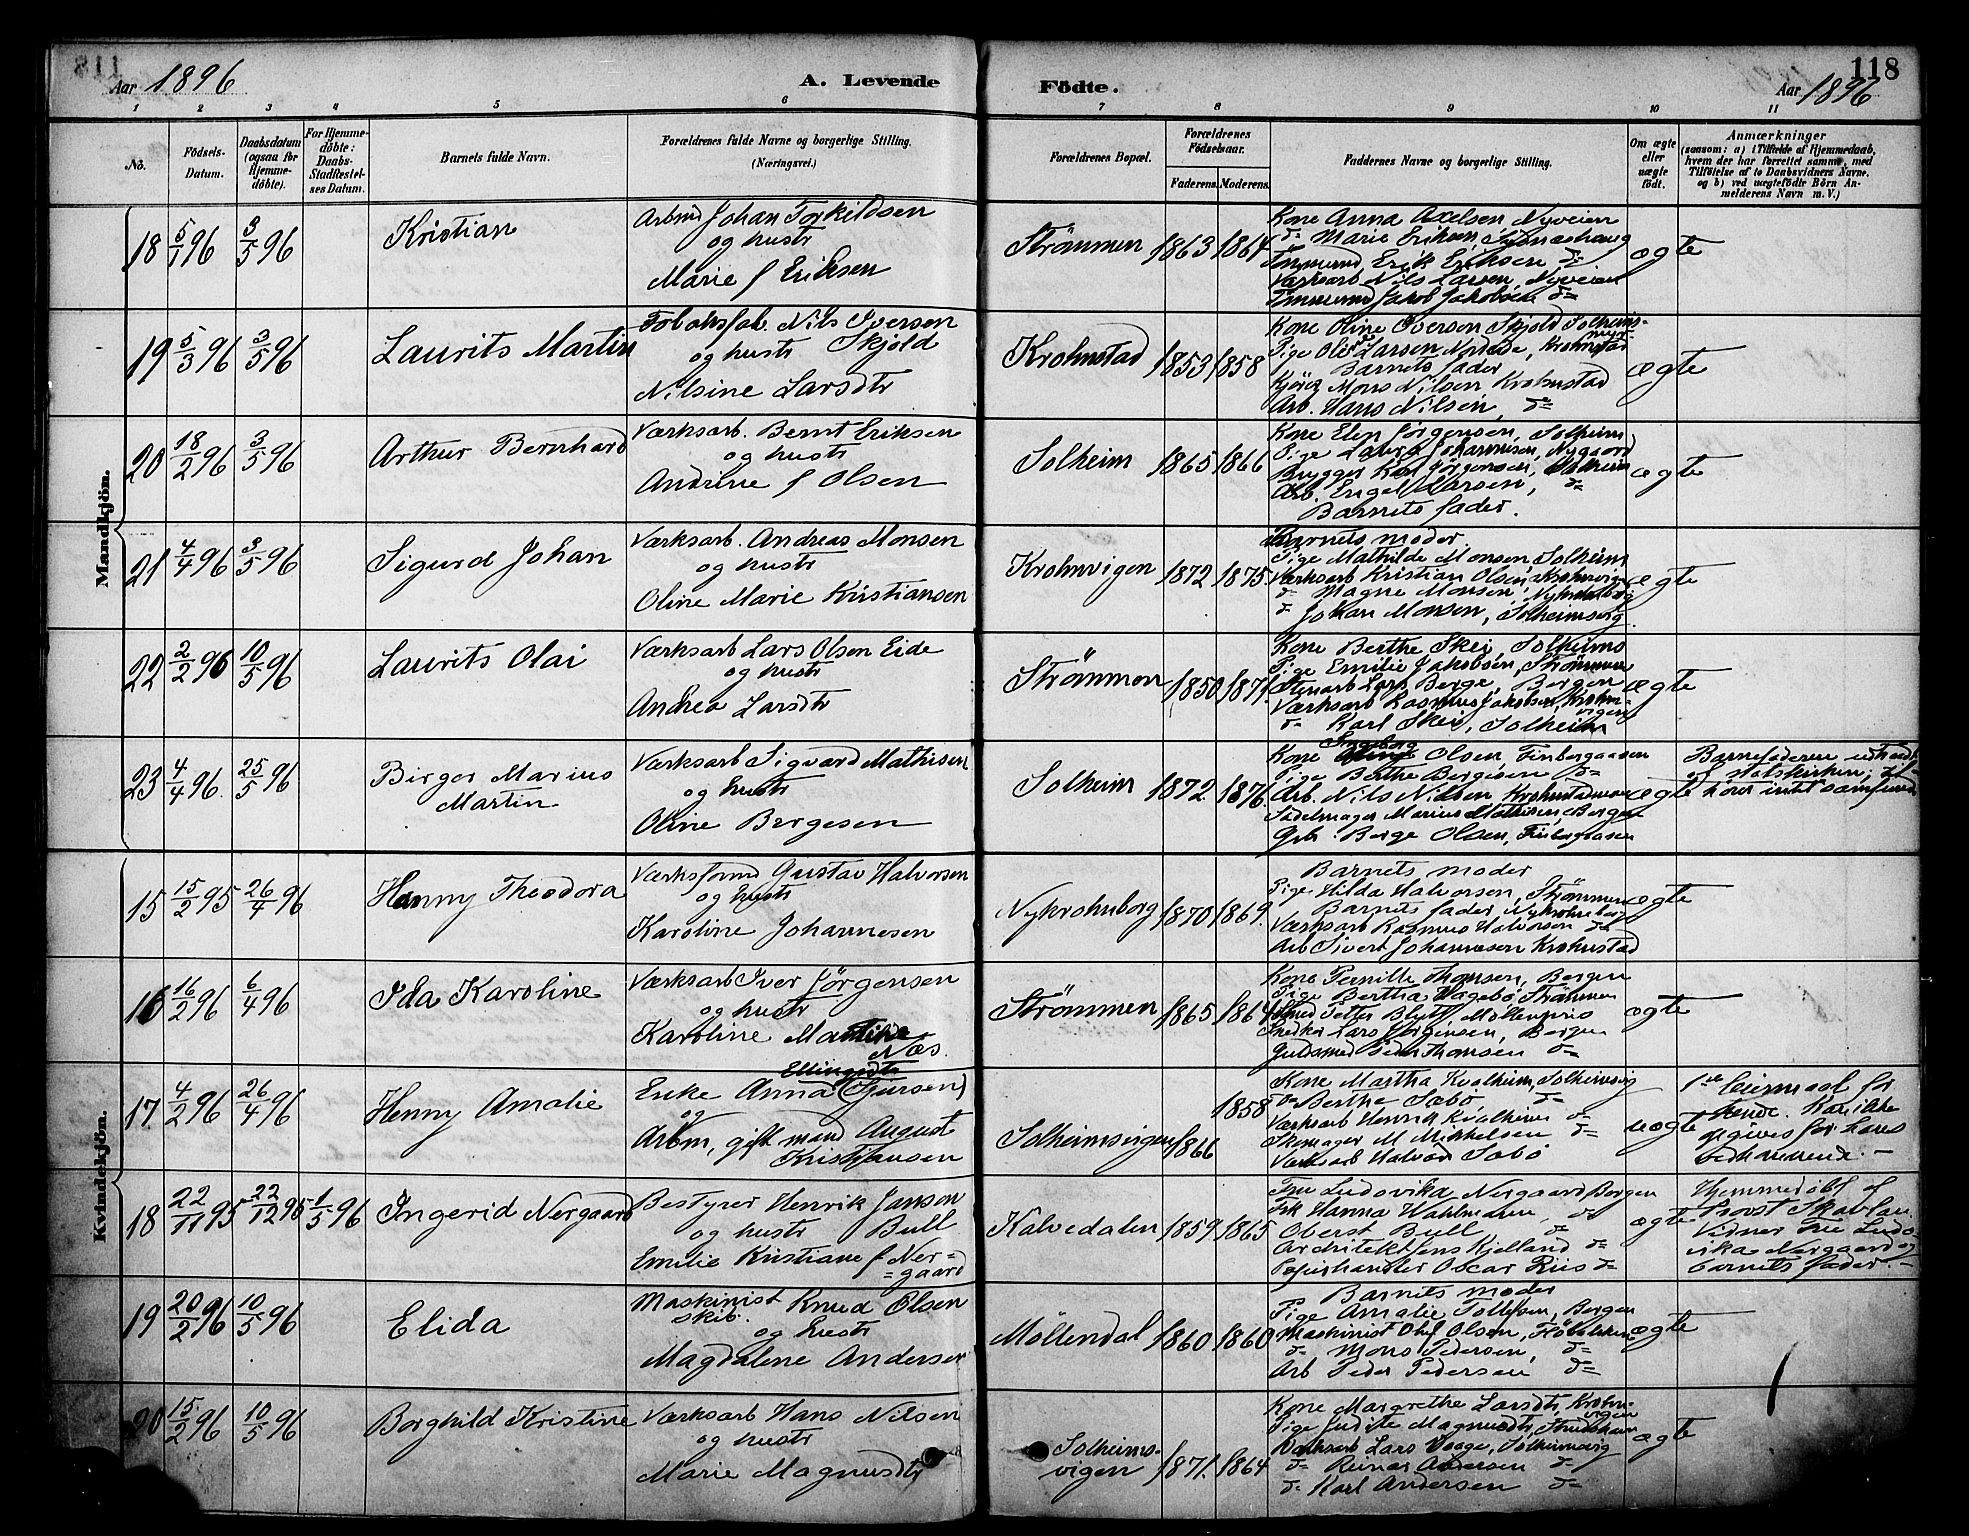 118
Aar 1896
A. Levende
Födte.
Aar 1896
1 2 3 4 5 6 7 8 9 10 11
No.
Födsels-
Datum.
Daabsdatum
(ogsaa for
Hjemme-
döbte).
For Hjemme-
döbte:
Daabs-
Stadfæstel-
ses Datum.
Barnets fulde Navn.
Forældrenes fulde Navne og borgerlige Stilling.
(Næringsvei.)
Forældrenes Bopæl.
Forældrenes
Födselsaar.
Faderens. Moderens.
Faddernes Navne og borgerlige Stilling.
Om ægte
eller
uægte
födt.
Anmærkninger
(saasom: a) i Tilfælde af Hjemmedaab,
hvem der har forrettet samme, med
Tilföielse af to Daabsvidners Navne,
og b) ved uægtefödte Börn An-
melderens Navn m. V.)
Mandkjön.
18 5/1 96 3/5 96 Kristian
Arbmd Johan Torkildsen
og hustr
Marie f Eriksen
Strömmen 1863 1864
Kone Anna Axelsen, Nyveien
do Marie Eriksen,
Tømmermd Erik Eriksen do
Værksarb Nils Larsen, Nyveien
Tømmermd Jakob Jakobsen do
ægte
19 5/3 96 3/5 96 Laurits Martin
Tobaksfab. Nils Iversen
og hustr Skjold
Nilsine Larsdtr
Krohnstad 1853 1858
Kone Oline Iversen Skjold Solheims-
Pige Oline Larsen Krohnstad
Barnets fader
Mons Nilsen Krohnstad
Arb. Hans Nilsen, do
ægte
20 18/2 96 3/5 96 Arthur Bernhard
Værksarb. Bernt Eriksen
og hustr
Andrine f Olsen
Solheim 1865 1866
Kone Elen Jørgensen, Solheim
Pige Laura Johannesen, Nygaard
Brygger Karl Jörgensen, Solheim
Arb. Engel Larsen, do
Barnets fader.
ægte
21 4/4 96 3/5 96 Sigurd Johan
Værksarb. Andreas Monsen
og hustr
Oline Marie Kristiansen
Krohnvigen 1872 1875
Barnets moder
Pige Mathilde Monsen, Solheim
Værksarb Kristian Olsen, Krohnvigen
do Magne Monsen, Nykrohnborg
do Johan Monsen, Solheimsvig
ægte
22 2/2 96 10/5 96 Laurits Olai
Værksarb Lars Olsen Eide
og hustr
Andrea Larsdtr
Strömmen 1850 1871.
Kone Berthe Skei, Solheims
Pige Emilie Jakobsen, Strømmen
Stenarb Lars Berge, Bergen
Værksarb Rasmus Jakobsen, Krohn-
vigen
do Karl Skei, Solheim
ægte
23 4/4 96. 25/5 96 Birger Marius
Martin
Værksarb Sigvard Mathisen
og hustr
Oline Bergesen
Solheim 1872 1876
Ingeborg
Kone Olsen, Finbergaasen
Pige Berthe Bergesen do
Arb. Nils Nilsen Krohnstadmyren
Sadelmager Marius Mathisen, Bergen
Gbr. Berge Olsen, Finbergaasen
ægte
Barnefaderen udtraadt
af statskirken, til-
hører intet samfund
Kvindekjön.
15 15/2 95 26/4 96 Hanny Theodora
Værksformd Gustav Halvorsen
og hustr
Karoline Johannesen
Nykrohnborg 1870 1869.
Barnets moder
Pige Hilda Halvorsen, Strømmen
Barnets fader, Nykrohnborg
Værksarb Rasmus Halvorsen do
Arb Sivert Johannesen Krohnstad
ægte
16 16/2 96 6/4 96 Ida Karoline
Værksarb Iver Jørgensen
og hustr
Karoline
Næs.
Strömmen 1865 1864
Kone Pernille Thomsen, Bergen
Pige Bertha Hagebø, Strømmen
Smed Petter Blytt, Møllenpris
Snedker Lars Jørgensen, Bergen
Guldsmed Peder Thomsen do
ægte
17 4/2 96 26/4 96 Henny Amalie
Ellingsdtr
Enke Anna (Gjersen)
og
Arbm, gift mand August
Kristiansen
Solheimsvigen 1866 1858
Kone Martha Kvalheim, Solheimsvig
do Berthe Sæbø do
Værksarb Henrik Kvalheim do
Skomager M Mikkelsen do
Værksarb Halvor Sæbø
uægte
1ste leiermaal for
hende. Kan ikke
opgives for hans
vedkommende. —
18 22/11 95 22/12 95 1/5 96 Ingerid Nergaard
Bestyrer Henrik Janson
og hustr Bull
Emilie Kristiane f Ner-
gaard
Kalvedalen 1859 1865
Fru Ludovika Nergaard Bergen
Frk Hanna Wahlmann, do
Oberst Bull do
Architekt Jens Kjelland do
Papirhandler Oscar Riis do
ægte
Hjemmedøbt af
Provst Skavlan
Vidner Fru Ludo-
vika Nergaard og
barnets fader. —
19 20/2 96 10/5 96 Elida
Maskinist Knud Olsen
skib.
og hustr
Magdalene Andersen
Möllendal 1860 1860
Barnets moder
Pige Amalie Tollefsen, Bergen
Maskinist Oluf Olsen,
do Mons Pedersen, do
Arb Peder Pedersen do
ægte
20 15/2 96 10/5 96 Borghild Kristine
Værksarb Hans Nilsen
og hustr
Marie Magnusdtr
Solheims-
vigen 1871. 1864
Kone Margrethe Larsdtr, Krohn-
vigen
Pige Judite Magnusdtr,
Værksarb Lars Vaage, Solheimsvig
do Reinar Andersen do
do Karl Andersen do
ægte